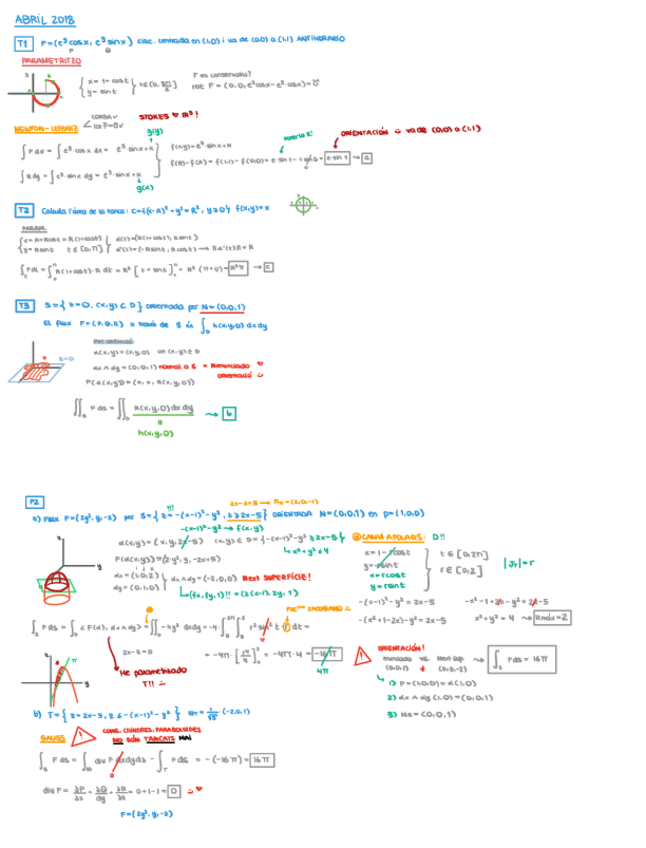 ABRIL 2018
T1 F=(e^y cosx, e^y sinx) circ. centrada en (1,0) i va de (0,0) a (1,1) ANTIHORARIO
PARAMETRITZO
x = 1+cost
y = sint
F es conservatiu?
rot F = (0,0, e^y cosx - e^y cosx) = 0
STOKES R³!
NEWTON-LEIBNIZ
rot F=0
g(y)
ORIENTACIÓN va de (0,0) a (1,1)
∫ P dx = ∫ e^y cosx dx = e^y sinx + k
f(x,y) = e^y sinx
f(B)-f(A) = f(1,1) - f(0,0) = e sin1 - 1 sin0 = e sin1 → a
∫ Q dy = ∫ e^y sinx dy = e^y sinx + k
g(x)
T2 Calcula l'àrea de la tanca: C={(x-R)²+y²=R², y≥0} f(x,y)=x
PARAM.
x = R+Rcost = R(1+cost)
y = Rsint t∈[0,π]
α(t)=(R(1+cost), Rsint)
α'(t)=(-Rsint, Rcost) → ||α'(t)||=R
∫ f dl = ∫ R(1+cost)·R dt = R² [t+sint] = R² (π+0) = R²π → c
T3 S={z=0, (x,y)⊂D} orientada per N=(0,0,1)
El flux F=(P,Q,R) a través de S és ∫ h(x,y,0) dxdy
z=0
α(x,y)=(x,y,0) on (x,y)∈D
dx∧dy=(0,0,1) normal a S = l'enunciado
orientació
F(α(x,y))=(*,*,R(x,y,0))
∬ F ds = ∬ R(x,y,0) dxdy → b
h(x,y,0)
P2
2x-z=5 → =(2,0,-1)
a) FLUX F=(2y²,y,-z) per S={z=-(x-1)²-y², z≥2x-5} ORIENTADA N=(0,0,1) en p=(1,0,0)
-(x-1)²-y² → f(x,y)
α(x,y)=(x,y,2x-5) (x,y)∈D={-(x-1)²-y²≥2x-5}
x²+y²≤4
F(α(x,y))=(2y²,y,-2x+5)
dx=(1,0,2)
dy=(0,1,0)
dx∧dy=(-2,0,1) NEXT SUPERFÍCIE!
(fx,fy,1)!! = (2(x-1),2y,1)
CANVI A POLARS: D!!
x=1-rcost
y=-rsint
x=rcost
y=rsint
t∈[0,2π]
r∈[0,2]
|Jr|=r
-(x-1)²-y²=2x-5
-(x²+1-2x)-y²=2x-5
-x²-1+2x-y²=2x-5
x²+y²=4 → Rmáx=2
∫ F ds = ∫ <F(α), dx∧dy> = ∬ -4y² dxdy = -4 ∫∫ r² sin²t · r drdt =
= -4π · [r⁴/4] = -4π·4 = -16π
4π
He parametrizado
T!!
ORIENTACIÓN!
enunciado vs. Next sup
∫ F ds = 16π
1) P=(1,0,0)=α(1,0)
2) dx∧dy(1,0)=(0,0,1)
3) Ns=(0,0,1)
b) T={z=2x-5, z≤-(x-1)²-y²} NT= 1/√5 ·(-2,0,1)
GAUSS
CONS, CILINDRES, PARABOLOIDES
NO SÓN TANCATS MAI
∫ F ds = ∫ div F dxdydz - ∫ F ds = -(-16π) = 16π
div F = ∂P/∂x + ∂Q/∂y + ∂R/∂z = 0+1-1 = 0
F=(2y²,y,-z)